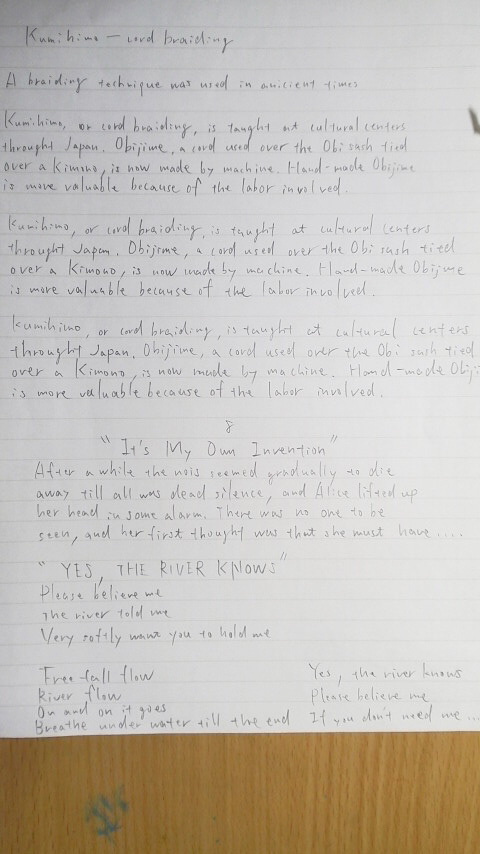 Kumihimo – cord braiding
A braiding technique was used in anicient times
Kumihimo, or cord braiding, is taught at cultural centers
throught Japan. Obijime, a cord used over the Obi sash tied
over a Kimono, is now made by machine. Hand-made Obijime
is more valuable because of the labor involved.
Kumihimo, or cord braiding, is taught at cultural centers
throught Japan. Obijime, a cord used over the Obi sash tied
over a Kimono, is now made by machine. Hand-made Obijime
is more valuable because of the labor involved.
Kumihimo, or cord braiding, is taught at cultural centers
throught Japan. Obijime, a cord used over the Obi sash tied
over a Kimono, is now made by machine. Hand-made Obiji
is more valuable because of the labor involved.
8
"It's My Own Invention"
After a while the nois seemed gradually to die
away till all was dead silence, and Alice lifted up
her head in some alarm. There was no one to be
seen, and her first thought was that she must have ....
"YES, THE RIVER KNOWS"
Please believe me
The river told me
Very softly want you to hold me
Free fall flow
River flow
On and on it goes
Breathe under water till the end
Yes, the river knows
Please believe me
If you don't need me ...